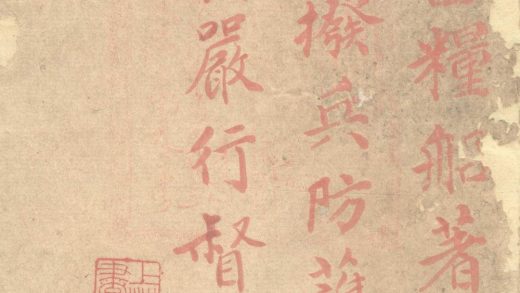 糧船著
撥兵防護
嚴行督